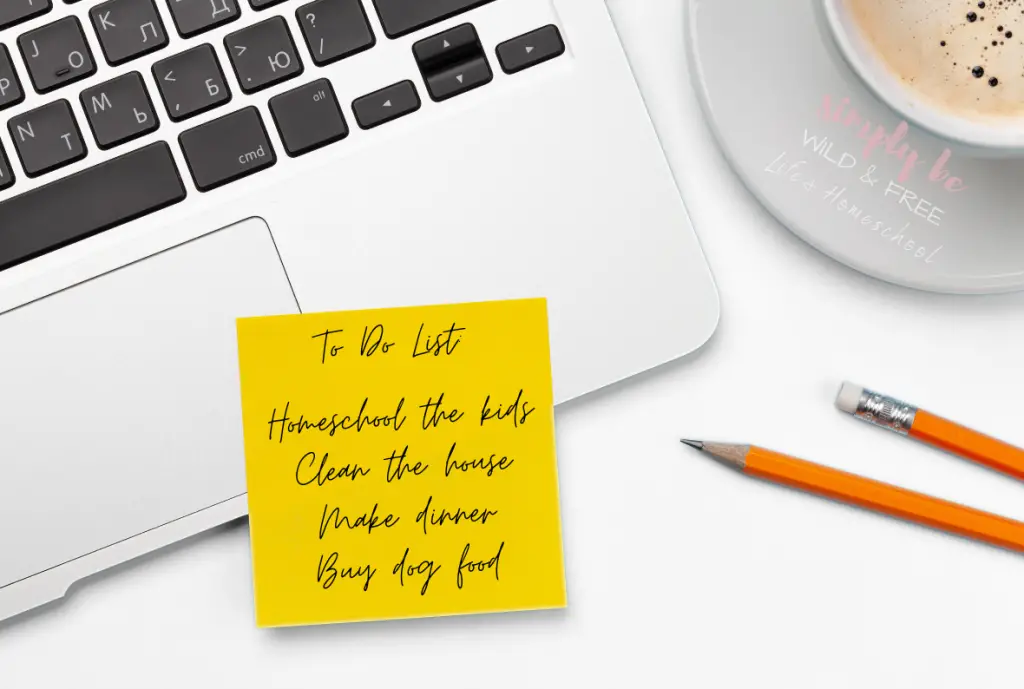 Д
K Л
J О
Р
?
/
>
. Ю
<
, Б
M Ь
N Т
alt
cmd
▲
▼
◄
►
simply be
WILD & FREE
Life & Homeschool
To Do List:
Homeschool the kids
Clean the house
Make dinner
Buy dog food